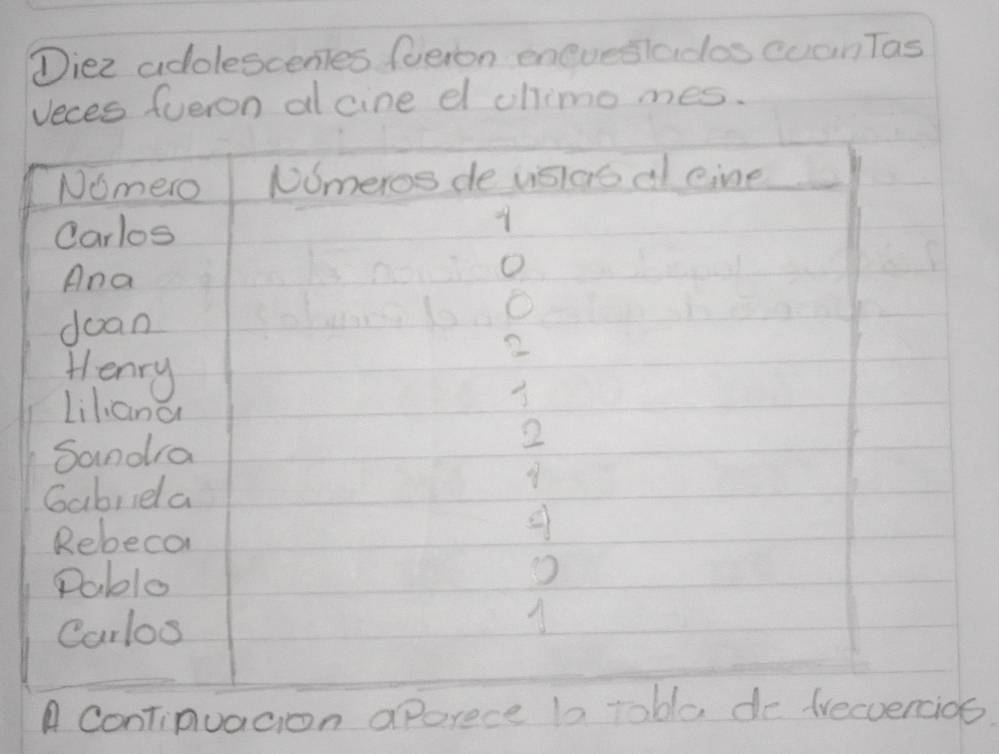 Diez adolescentes fueron encuestados cuantas
veces fueron al cine el ultimo mes.
Número Números de vistas al cine
Carlos 1
Ana 0
Juan 0
Henry 2
Liliana 1
Sandra 2
Gabriela 1
Rebeca 4
Pablo 0
Carlos 1
A continuacion aparece la tabla de frecuencias